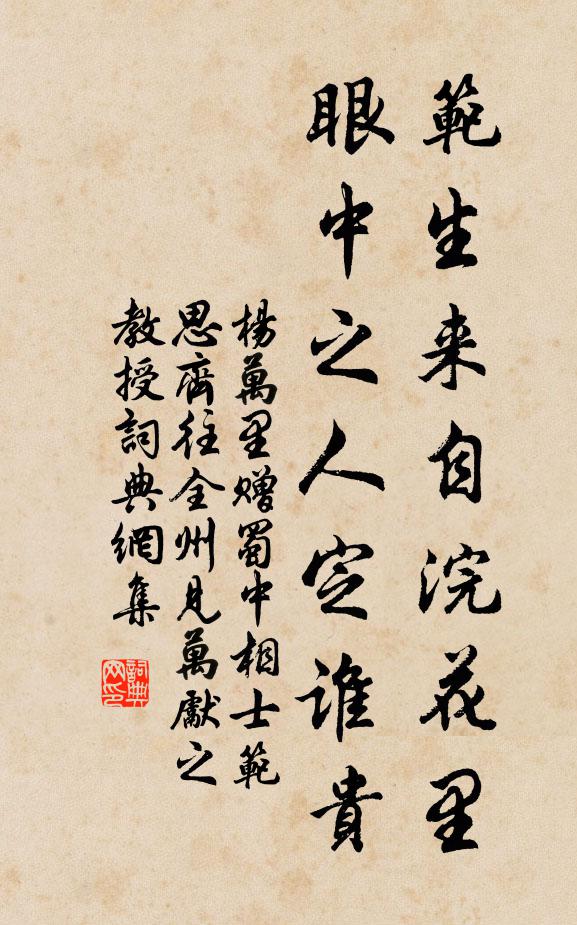 範生来自浣花里
眼中之人定誰貴
楊萬里贈蜀中相士範
思齊往全州見萬獻之
教授詞典網集
詞典
网印